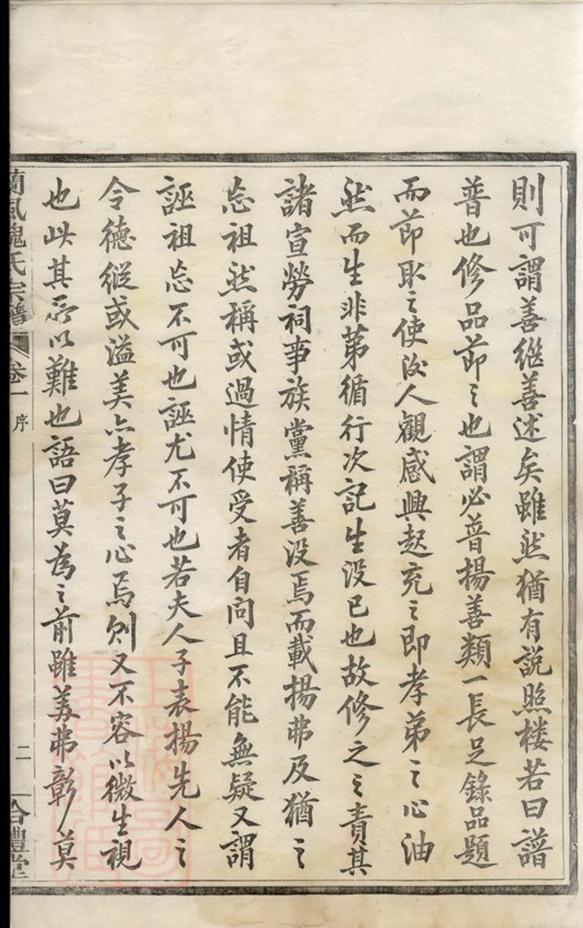 則可謂善繼善述矣雖然猶有説照樓若曰譜
普也修品節之也謂必普揚善類一長足錄品題
而節取之使後人觀感興起充之即孝弟之心油
然而生非第循行次記生沒已也故修之之責其
諸宣勞祠事族黨稱善沒焉而載揚弗及猶之
忘祖然稱或過情使受者自問且不能無疑又謂
誣祖忘不可也誣尤不可也若夫人子表揚先人之
令德縱或溢美亦孝子之心焉例又不容以微生視
也此其所以難也語曰莫為之前雖美弗彰莫
蘭風魏氏宗譜 卷一 序 二 合禮堂